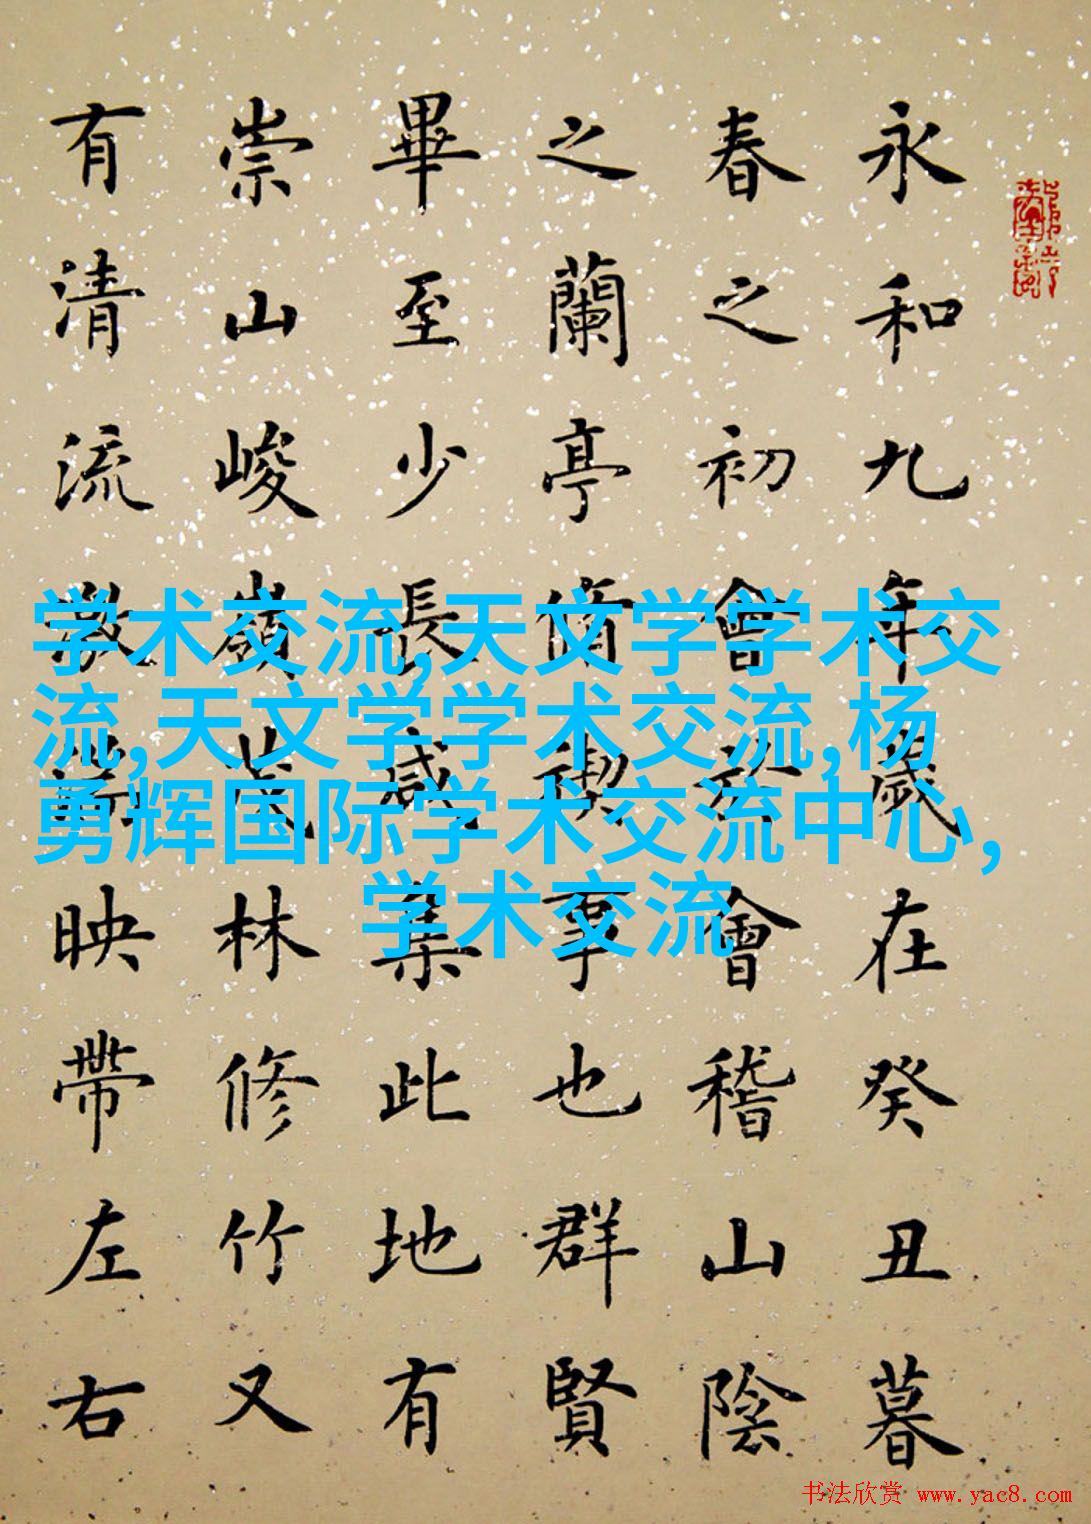 永和九年歲在癸丑暮
春之初會於會稽山陰
之蘭亭脩禊事也群賢
畢至少長咸集此地有
崇山峻嶺茂林修竹又
有清流激湍映帶左右
学术交流,天文学学术交
流,天文学学术交流,杨
勇辉国际学术交流中心,
学术交流
书法欣赏 www.yac8.com